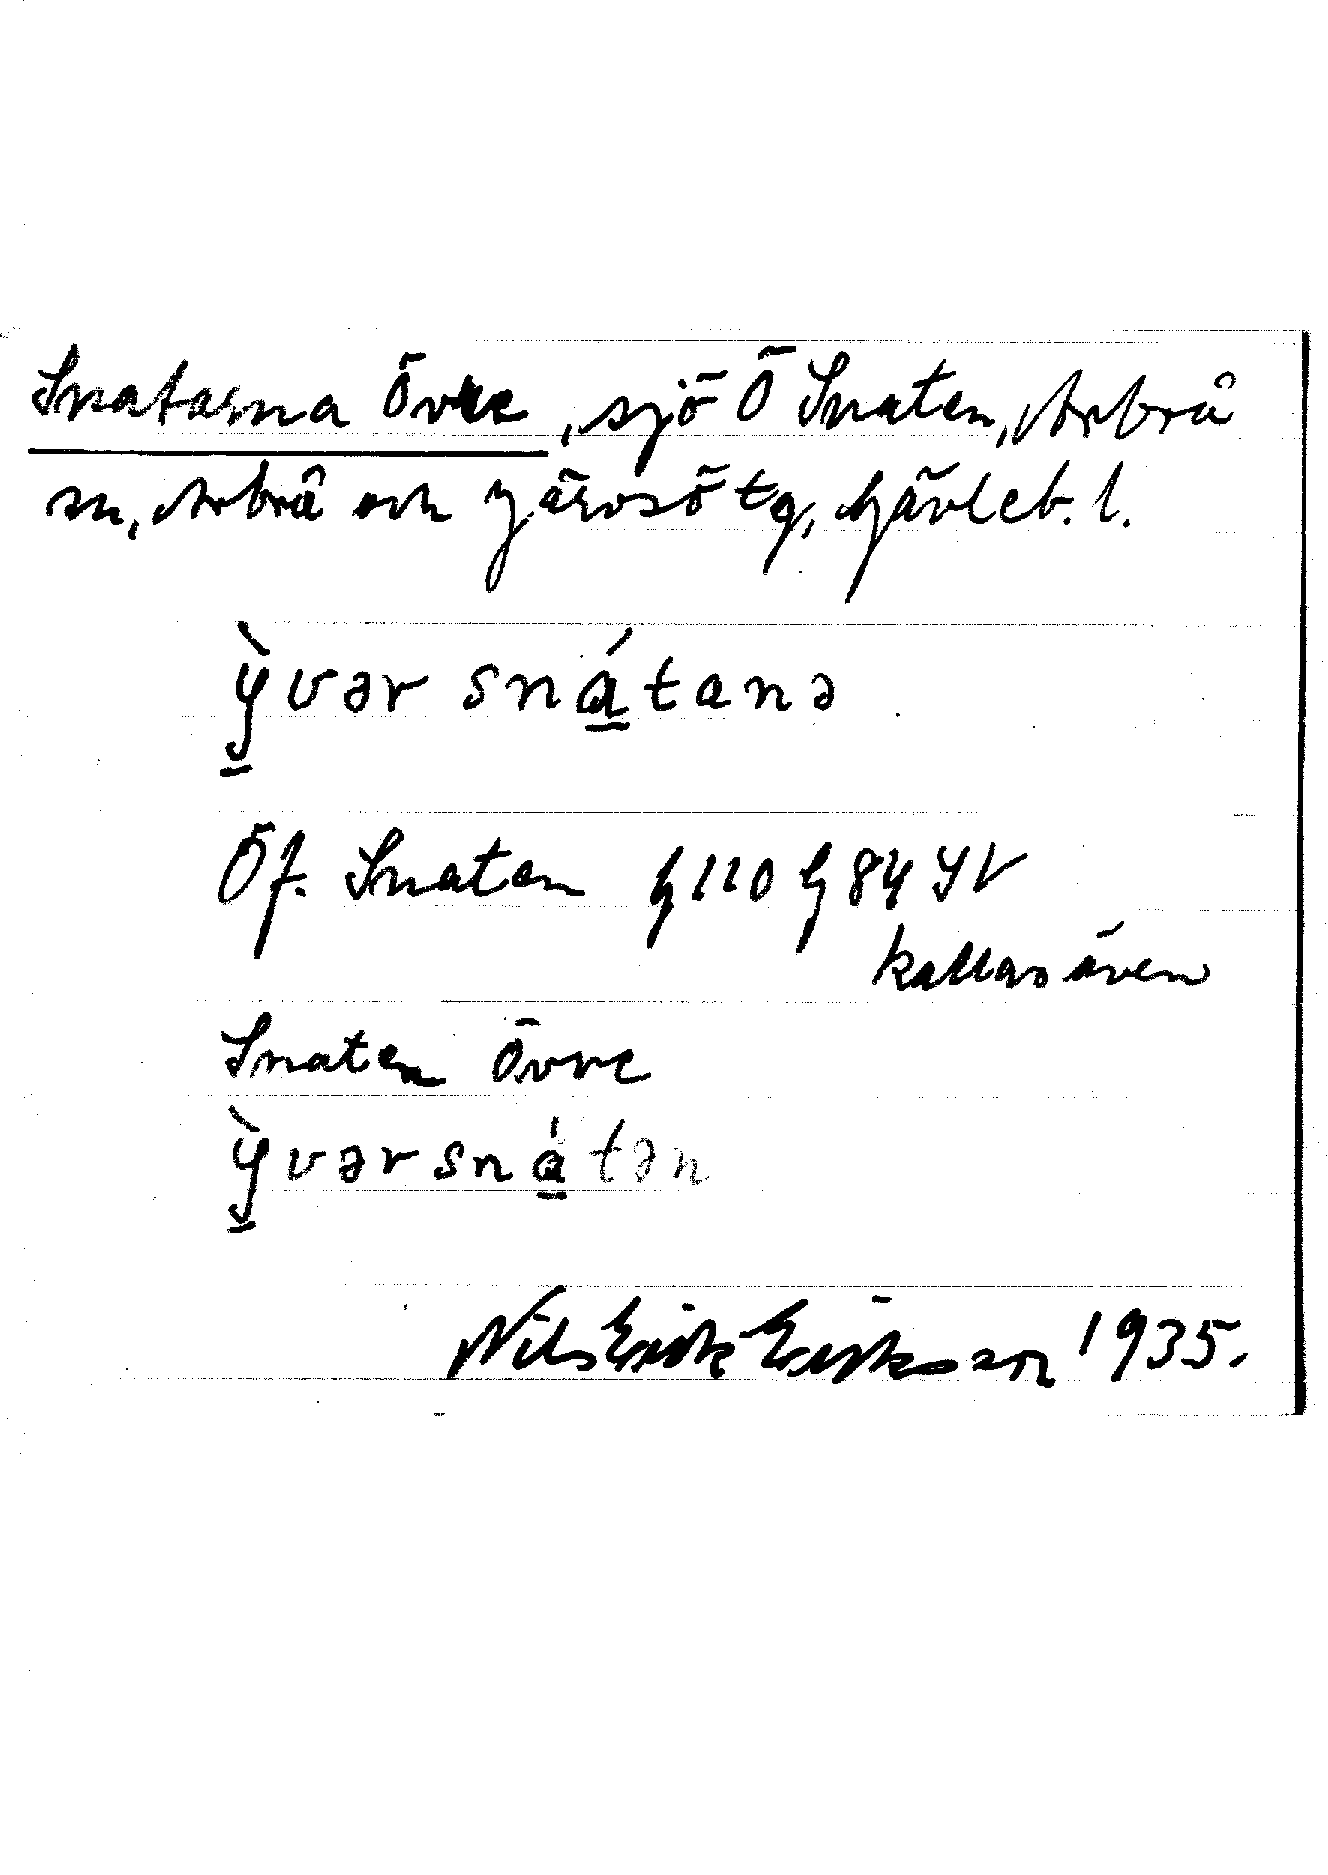 Snatarna Övre, sjö Ö Snaten, Arbrå
sn, Arbrå och Järvsö tg, Gävleb. l.
ỳ̱vər sná̱tanə
Öf. Snaten G110 G84 SV
kallas även
Snaten Övre
ỳ̱vərsná̱tən
Nils Erik Eriksson 1935.